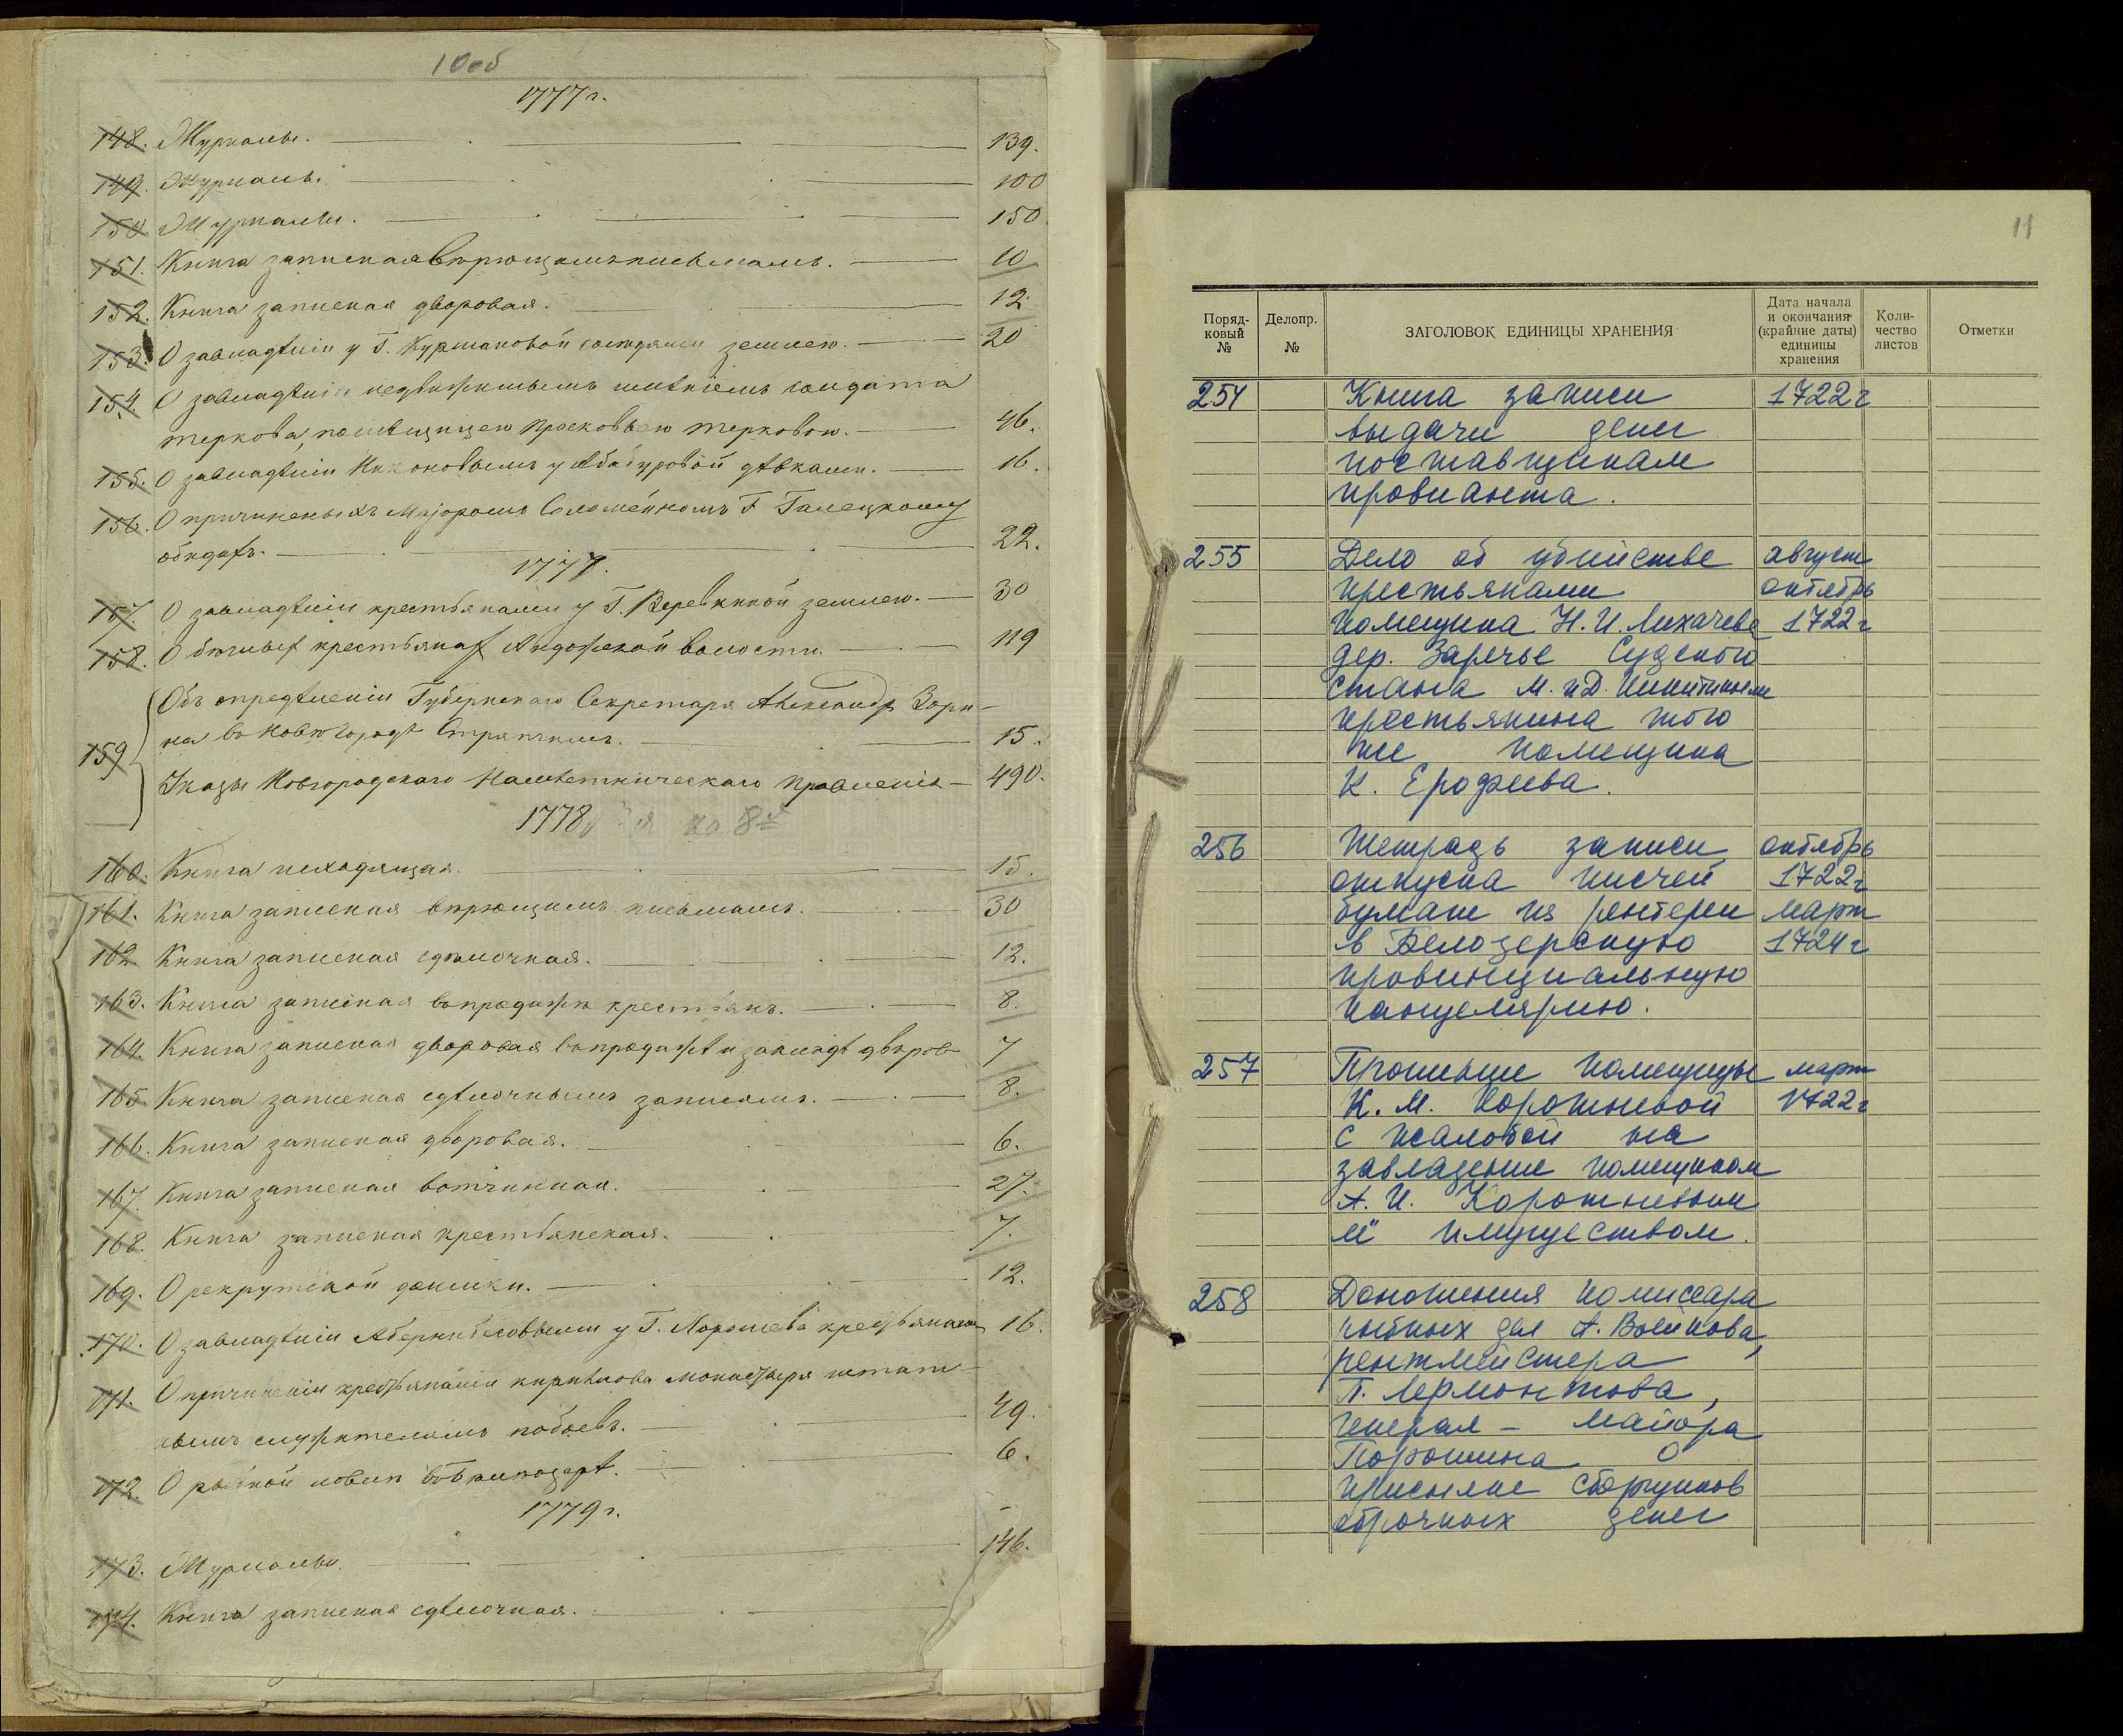 10об
1777 г.
148. Журналы. 139.
149. Журналъ. 100
150. Журналы. 150
151. Книга записная вѣрющимъ письмамъ. 10
152. Книга записная дворовая. 12.
153. О завладѣніи у Г. Курмановой сосѣдями землею. 20
154. О завладѣніи недвижимымъ имѣніемъ солдата
Теркова, помѣщицею Просковьею Терковою. 46.
155. О завладѣніи у Абатуровой дѣвками. 16.
156. О причиненыхъ Маіоромъ Г. Галецкому
обидахъ. 22.
1777.
157. О завладѣніи крестьянами у Г. Веревкиной землею. 30
158. О бѣглыхъ крестьянах Андожской волости. 119
159 Объ опредѣленіи Губернскаго Секретаря Александра Зори-
на въ Новѣгородѣ Стряпчимъ. 15.
Указы Новгородскаго Намѣстническаго Правленія 490.
1778
160. Книга исходящая. 15.
161. Книга записная вѣрющимъ письмамъ. 30
162. Книга записная сдѣлочная. 12.
163. Книга записная о продажѣ крестьянъ. 8.
164. Книга записная дворовая о продажѣ и закладѣ дворов 7
165. Книга записная сдѣлочнымъ записямъ. 8.
166. Книга записная дворовая. 6.
167. Книга записная вотчинная. 27.
168. Книга записная крестьянская. 7.
169. О рекрутской доимки. 12.
170. О завладѣніи у Г. крестьянами 16.
171. О причиненіи крестьянами Кирилова монастыря штат-
нымъ служителямъ побоевъ. 49.
172. О рыбной ловлѣ въ Бѣлѣозерѣ. 6.
1779 г.
173. Журналы. 146.
174. Книга записная сдѣлочная.
11
Поряд-
ковый
№
Делопр.
№
ЗАГОЛОВОК ЕДИНИЦЫ ХРАНЕНИЯ
Дата начала
и окончания
(крайние даты)
единицы
хранения
Коли-
чество
листов
Отметки
254 Книга записи 1722 г
выдачи денег
поставщикам
провианта.
255 Дело об убийстве август
крестьянами октябрь
помещика Н. И. Лихачева 1722 г
дер. Заречье Судского
стана М. и Д. Никитиными
крестьянина того
же помещика
К. Ерофеева.
256 Тетрадь записи октябрь
отпуска писчей 1722 г
бумаги из рентереи март
в Белозерскую 1724 г
провинциальную
канцелярию.
257 Прошение помещицы март
К. М. Коротневой 1722 г
с жалобой на
завладение помещиком
А. И. Коротневым
её имуществом.
258 Доношения комиссара
рыбных дел А. Воейкова,
рентмейстера
П. Лермонтова,
генерал - майора
Порошина о
присылке сборщиков
оброчных денег